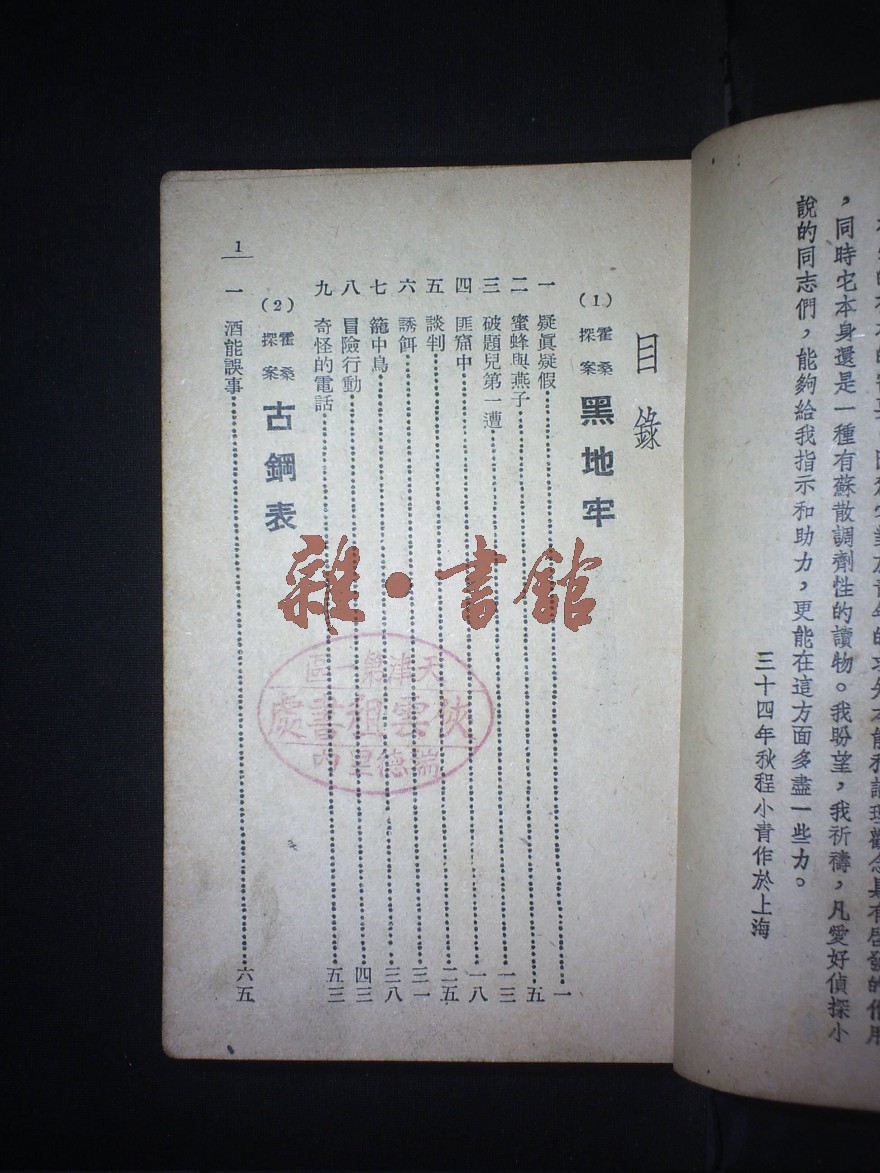 ，同時它本身還是一種有蘇散調劑性的讀物。我盼望，我祈禱，凡愛好偵探小
說的同志們，能夠給我指示和助力，更能在這方面多盡一些力。
三十四年秋程小青作於上海
目錄
(1) 霍桑探案 黑地牢
一 疑眞疑假 一
二 蜜蜂與燕子 五
三 破題兒第一遭 一三
四 匪窟中 一八
五 談判 二五
六 誘餌 三一
七 籠中鳥 三八
八 冒險行動 四三
九 奇怪的電話 五三
(2) 霍桑探案 古鋼表
一 酒能誤事 六五
1
雜·書館
天津第一區
俠雲租書處
瑞德里內